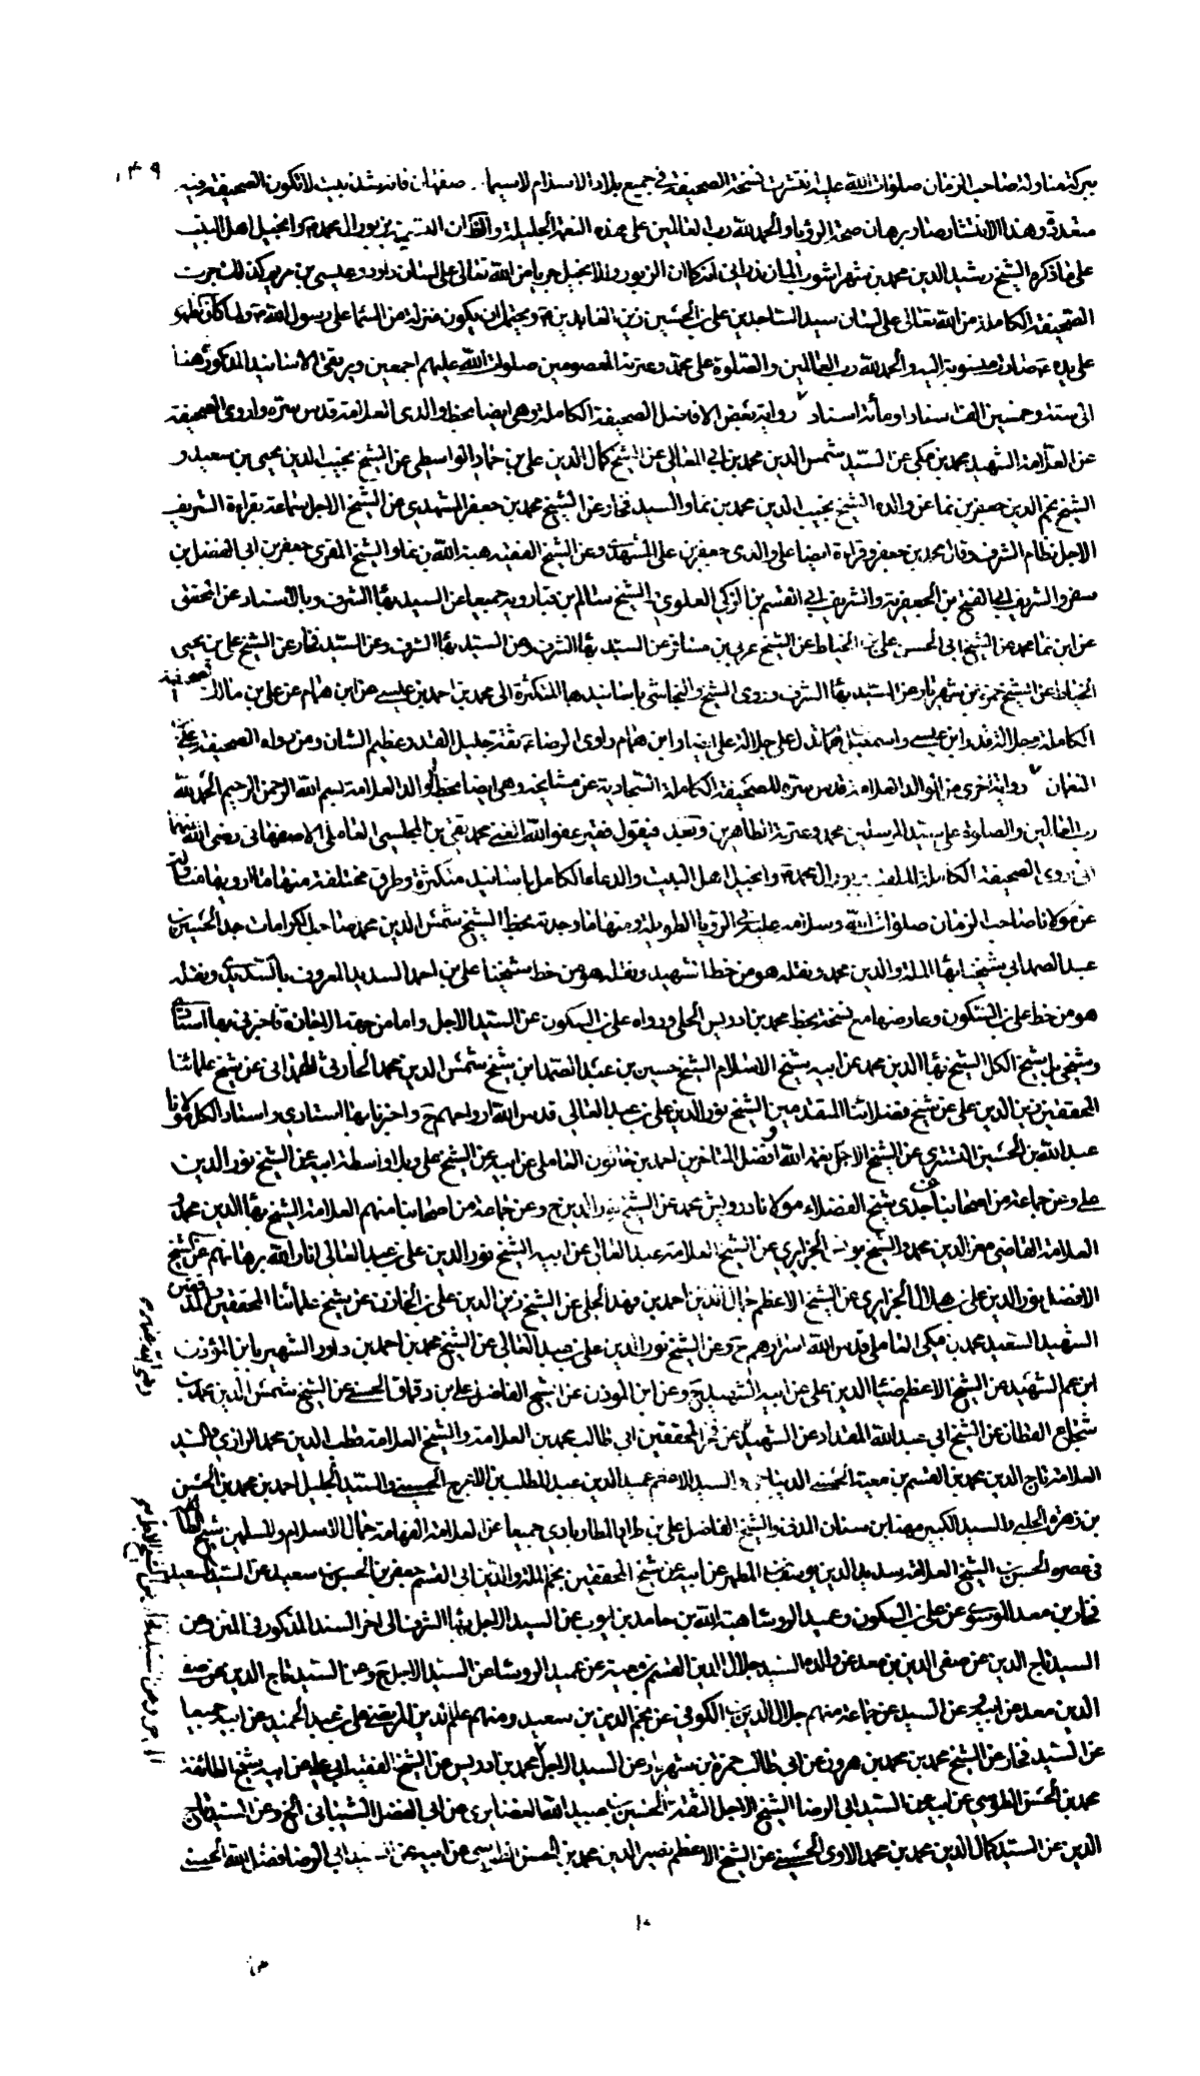 ١٤٩
ببركة مناولة صاحب الزمان صلوات الله عليه انتشرت نسخة الصحيفة في جميع بلاد الاسلام لاسيما صفهان فانه شذ بيت لا تكون الصحيفة فيه
متعددة وهذا الانتشار صار برهان صحة الرؤيا والحمد لله رب العالمين على هذه النعمة الجليلة بزبور ال محمد وانجيل اهل البيت
على ما ذكره الشيخ رشيد الدين محمد بن شهراشوب المازندراني انه كما ان الزبور والانجيل جريا من الله تعالى على لسان داود وعيسى بن مريم كذلك جرت
الصحيفة الكاملة من الله تعالى على لسان سيد الساجدين علي بن الحسين زين العابدين ويحتمل ان يكون منزلة من السماء على رسول الله ولما كان ظهر
على يده صارت منسوبة اليه والحمد لله رب العالمين والصلوة على محمد وعترته المعصومين صلوات الله عليهم اجمعين ويرتقي الاسانيد المذكورة هنا
الى ستة وخمسين الف اسناد ومائة اسناد رواية بعض الافاضل الصحيفة الكاملة وهي ايضا بخط والدي العلامة قدس سره واروي الصحيفة
عن العلامة الشهيد محمد بن مكي عن السيد شمس الدين محمد بن ابي المعالي عن الشيخ كمال الدين علي بن حماد الواسطي عن الشيخ نجيب الدين يحيى بن سعيد و
الشيخ نجم الدين جعفر بن نما عن والده الشيخ نجيب الدين محمد بن نما والسيد فخار عن الشيخ محمد بن جعفر المشهدي عن الشيخ الاجل سماعه بقراءة الشريف
الاجل نظام الشرف وقال محمد بن جعفر وقراءة ايضا على والدي جعفر بن علي المشهدي وعن الشيخ الفقيه هبة الله بن نما والشيخ المقري جعفر بن ابي الفضل بن
والشريف ابي الفتح بن الجعفرية والشريف ابي القسم بن الزكي العلوي والشيخ سالم بن قبارويه جميعا عن السيد بهاء الشرف وبالاسناد عن المحقق
عن ابن نما عن الشيخ ابي الحسن علي بن الخياط عن الشيخ عربي بن مسافر عن السيد بهاء الشرف وعن السيد بهاء الشرف وعن السيد فخار عن الشيخ علي بن يحيى
الخياط عن الشيخ حمزة بن شهريار عن السيد بهاء الشرف وروى الشيخ والنجاشي باسانيدهما المتكثرة الى محمد بن احمد بن عيسى عن ابن همام عن علي بن مالك
الكاملة وجلالة قدر ابن عيسى واسمعيل وابن همام راوي الرضا ثقة جليل القدر وعظيم الشان ومن رواه الصحيفة علي
النعمان رواية اخرى من الوالد العلامة قدس سره للصحيفة الكاملة السجادية عن مشايخه وهي ايضا بخط الوالد العلامة بسم الله الرحمن الرحيم الحمد لله
رب العالمين والصلوة على سيد المرسلين محمد وعترته الطاهرين وبعد فيقول فقير عفو الله الغني محمد تقي بن المجلسي العاملي الاصفهاني رضي الله عنهما
اني اروي الصحيفة الكاملة الملقبة بزبور ال محمد وانجيل اهل البيت والدعاء الكامل باسانيد متكثرة وطرق مختلفة منها ما ارويها مناولة
عن مولانا صاحب الزمان صلوات الله وسلامه عليه في الرؤيا الطويلة ومنها ما وجدته بخط الشيخ شمس الدين محمد صاحب الكرامات جد الحسين بن
عبد الصمد ابي شيخنا بهاء الملة والدين محمد ونقله هو من خط الشهيد ونقله هو من خط شيخنا علي بن احمد السديد المعروف بالسديدي ونقله
هو من خط علي بن السكون وعارضها مع نسخة بخط محمد بن ادريس الحلي ورواه علي بن السكون عن السيد الاجل واما من جهة الاجازة فاخبرني بها استادي
وشيخي بل شيخ الكل الشيخ بهاء الدين محمد عن ابيه شيخ الاسلام الشيخ حسين بن عبد الصمد ابن شيخ شمس الدين محمد الحارثي الهمداني عن شيخ علمائنا
المحققين زين الدين علي عن شيخ فضلائنا المتقدمين الشيخ نور الدين علي بن عبد العالي قدس الله ارواحهم ح واخبرنا بها استادي واستاد الكل مولانا
عبد الله بن الحسين التستري عن الشيخ الاجل نعمة الله وافضل المتاخرين احمد بن خاتون العاملي عن ابيه عن الشيخ علي وبلا واسطة ابيه عن الشيخ نور الدين
علي وعن جماعة من اصحابنا جدي شيخ الفضلاء مولانا درويش محمد عن الشيخ نور الدين ح وعن جماعة من اصحابنا منهم العلامة الشيخ بهاء الدين محمد و
العلامة القاضي معز الدين محمد والشيخ يونس الجزايري عن الشيخ العلامة عبد العالي عن ابيه الشيخ نور الدين علي بن عبد العالي انار الله برهانهم عن الشيخ
الافضل نور الدين علي بن هلال الجزايري عن الشيخ الاعظم جمال الدين احمد بن فهد الحلي عن الشيخ زين الدين علي بن الخازن عن شيخ علمائنا المحققين والمدققين
الشهيد السعيد محمد بن مكي العاملي قدس الله اسرارهم ح وعن الشيخ نور الدين علي بن عبد العالي عن الشيخ محمد بن احمد بن داود الشهير بابن المؤذن
ابن عم الشهيد عن الشيخ الاعظم ضياء الدين علي عن ابيه الشهيد ح وعن ابن المؤذن عن الشيخ الفاضل علي بن دقماق الحسني عن الشيخ شمس الدين محمد بن
شجاع القطان عن الشيخ ابي عبد الله المقداد عن الشهيد عن فخر المحققين ابي طالب محمد بن العلامة والشيخ العلامة قطب الدين محمد الرازي والسيد
العلامة تاج الدين محمد بن القسم بن معية الحسني الديباجي والسيد الاعظم عميد الدين عبد المطلب بن الاعرج الحسيني والسيد الجليل احمد بن محمد بن الحسن
بن زهرة الحلبي والسيد الكبير مهنا بن سنان المدني والشيخ الفاضل علي بن طراد المطاربادي جميعا عن العلامة الفهامة جمال الاسلام والمسلمين شيخ الطائفة
في عصره الحسن بن الشيخ العلامة سديد الدين يوسف المطهر عن ابيه عن شيخ المحققين نجم الملة والدين ابي القسم جعفر بن الحسن بن سعيد عن السيد السعيد
فخار بن معد الموسوي عن علي بن السكون وعميد الرؤسا هبة الله بن حامد بن ايوب عن السيد الاجل بهاء الشرف الى اخر السند المذكور في المتن وعن
السيد تاج الدين عن صفي الدين بن معد عن والده السيد جلال الدين القسم بن معية عن عميد الرؤسا عن السيد الاجل ح وعن السيد تاج الدين عن صفي
الدين معد عن ابيه عن السيد عن جماعة منهم جلال الدين بن الكوفي عن نجم الدين بن سعيد ومنهم علم الدين المرتضى علي بن عبد الحميد عن ابيه جميعا
عن السيد فخار عن الشيخ محمد بن محمد بن هرون عن ابي طالب حمزة بن شهريار عن السيد الاجل محمد بن ادريس عن الشيخ الفقيه ابي علي عن ابيه شيخ الطائفة
محمد بن الحسن الطوسي عن ابيه عن السيد ابي الرضا الشيخ الاجل الثقة الحسين بن عبيد الله الغضايري عن ابي المفضل الشيباني الخ وعن السيد تاج
الدين عن السيد كمال الدين محمد بن محمد الاوي الحسيني عن الشيخ الاعظم نصير الدين محمد بن الحسن الطوسي عن ابيه عن السيد ابي الرضا فضل الله الحسني
١٠